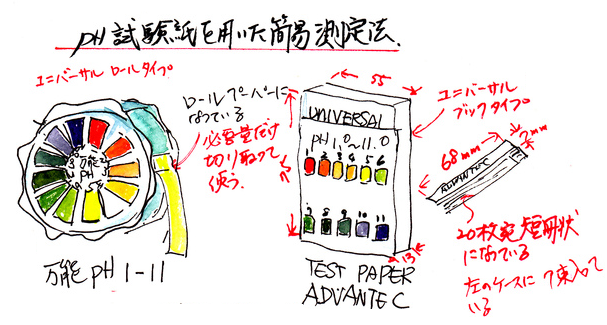 pH試験紙を用いた簡易測定法.
ユニバーサル ロールタイプ.
ロールペーパーに
なっている
必要量だけ
切り取って
使う.
万能
pH
万能 pH 1-11
55
UNIVERSAL
pH 1.0~11.0
1 2 3 4 5 6
7 8 9 10 11
13
TEST PAPER
ADVANTEC
ユニバーサル
ブックタイプ.
68mm
7mm
ADVANTEC
20枚宛短冊状
になっている
左のケースに 7束入って
いる